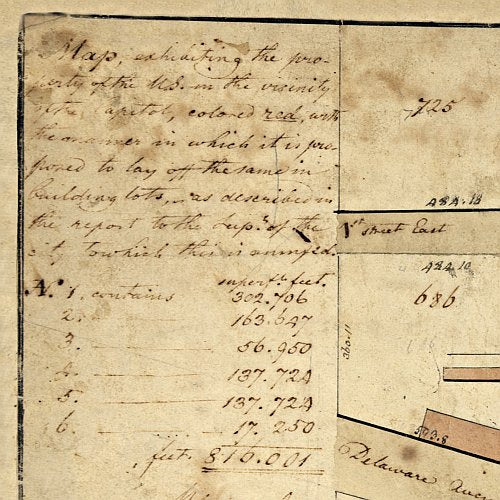 Map, exhibiting the pro-
perty of the U.S. in the vicinity
of the Capitol, colored red, with
the manner in which it is pro-
posed to lay off the same in
building lots, as described in
the report to the Sup.r of the
city to which this is annexed.
superf.l feet.
No. 1. contains 302.706
2. 163.647
3. 56.950
4. 137.724
5. 137.724
6. 17.250
feet. 810.001
725
484.10
1st street East
484.10
686
360.11
543.8
Delaware